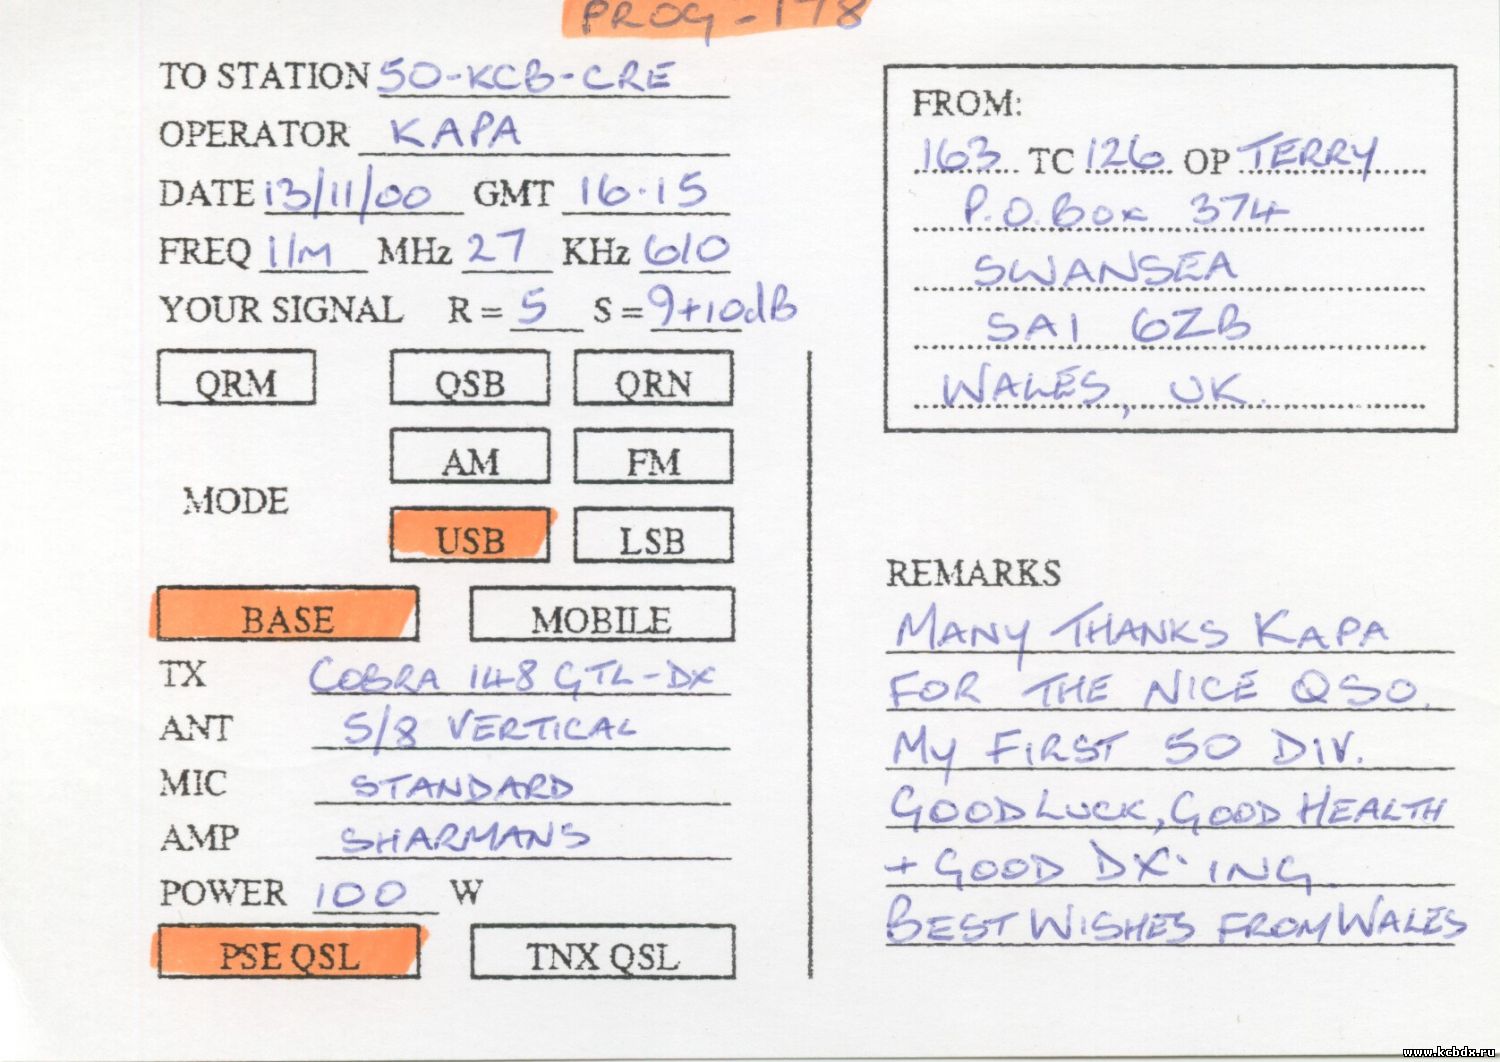 PROG-178
TO STATION 50-KCB-CRE
OPERATOR KAPA
DATE 13/11/00 GMT 16.15
FREQ 11m MHz 27 KHz 610
YOUR SIGNAL R = 5 S = 9+10dB
QRM QSB QRN
AM FM
MODE
USB LSB
BASE MOBILE
TX COBRA 148 GTL-DX
ANT 5/8 VERTICAL
MIC STANDARD
AMP SHARMANS
POWER 100 W
PSE QSL TNX QSL
FROM:
163 TC 126 OP TERRY
P.O.Box 374
SWANSEA
SA1 6ZB
WALES, UK.
REMARKS
MANY THANKS KAPA
FOR THE NICE QSO.
MY FIRST 50 DIV.
GOOD LUCK, GOOD HEALTH
+ GOOD DX'ING.
BEST WISHES FROM WALES
www.kcbdx.ru